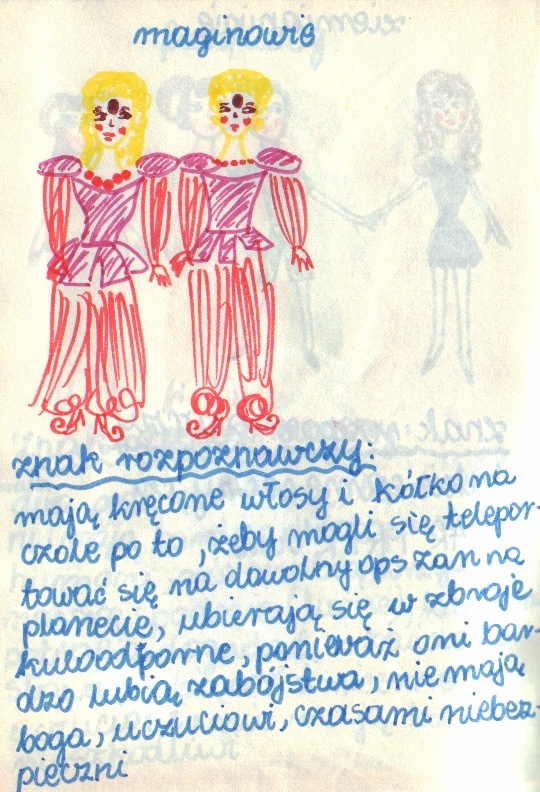 maginowie
znak rozpoznawczy:
mają kręcone włosy i kółko na
czole po to, żeby mogli się telepor-
tować się na dowolny opszan na
planecie, ubierają się w zbroje
kuloodporne, ponieważ oni bar-
dzo lubią zabójstwa, nie mają
boga, uczuciowi, czasami niebez-
pieczni
ziemianie
znak